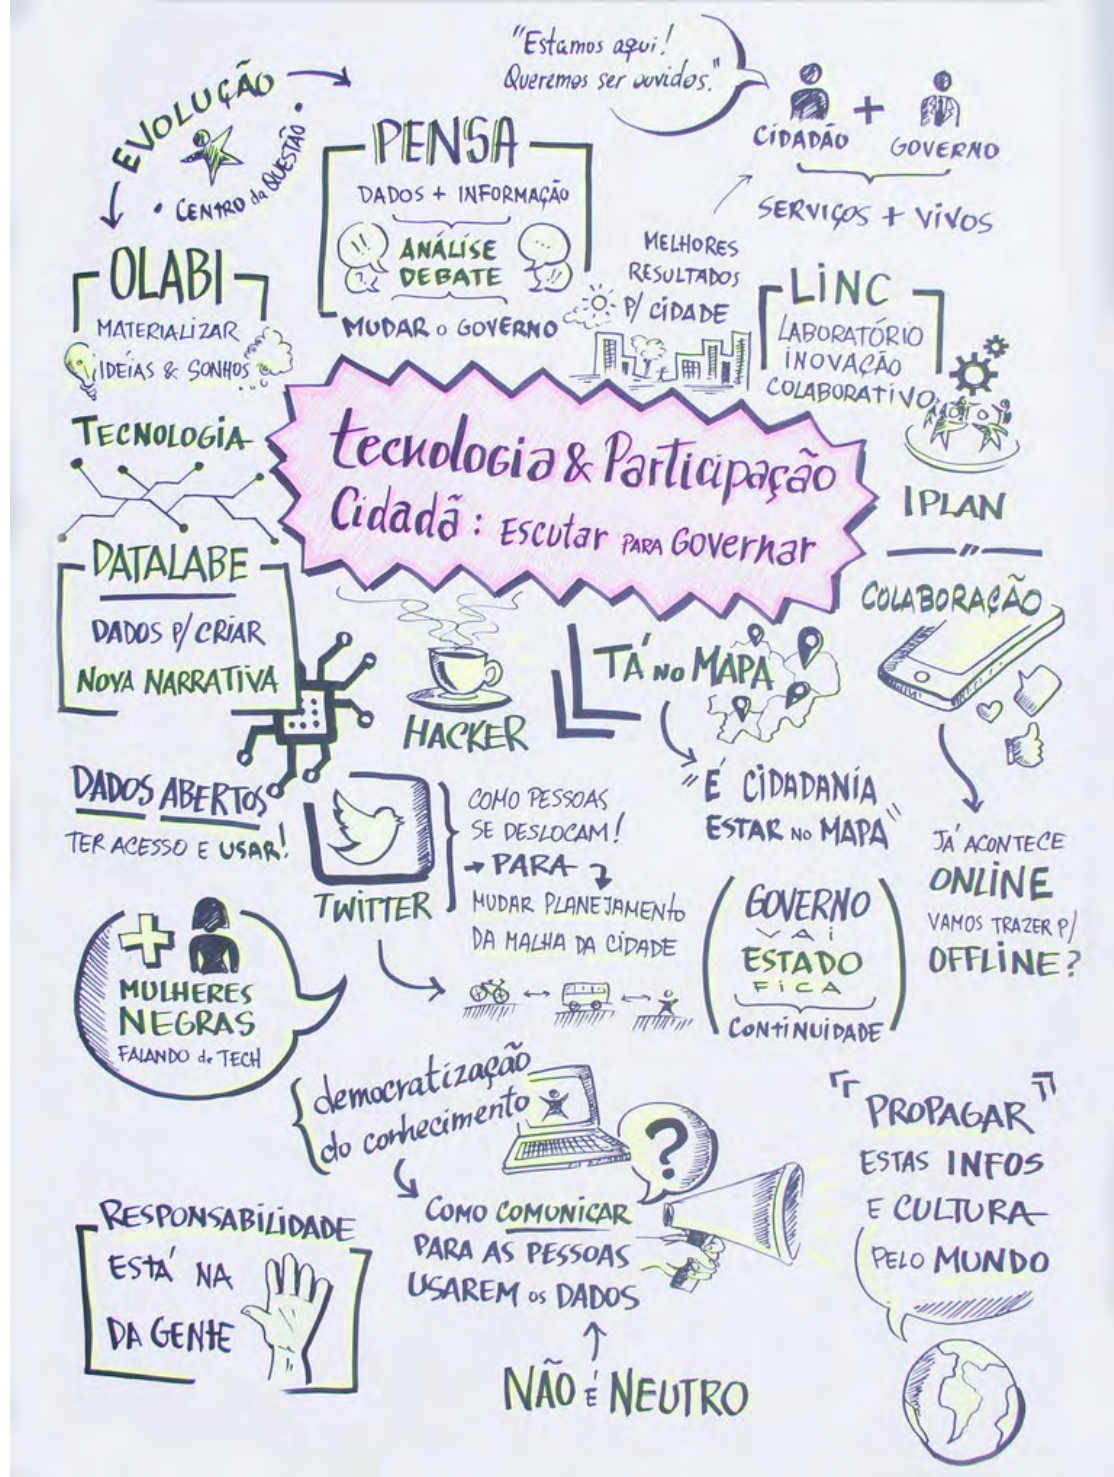 "Estamos aqui!
Queremos ser ouvidos."
CIDADÃO + GOVERNO
SERVIÇOS + VIVOS
EVOLUÇÃO
• CENTRO da QUESTÃO •
PENSA
DADOS + INFORMAÇÃO
ANÁLISE
DEBATE
MUDAR o GOVERNO
MELHORES
RESULTADOS
P/ CIDADE
OLABI
MATERIALIZAR
IDEÍAS & SONHOS
LINC
LABORATÓRIO
INOVAÇÃO
COLABORATIVO
IPLAN
TECNOLOGIA
tecnologia & Participação
Cidadã: Escutar PARA Governar
DATALABE
DADOS P/ CRIAR
NOVA NARRATIVA
HACKER
TÁ NO MAPA
"É CIDADANÍA
ESTAR NO MAPA"
COLABORAÇÃO
JÁ ACONTECE
ONLINE
VAMOS TRAZER P/
OFFLINE?
DADOS ABERTOS
TER ACESSO E USAR!
TWITTER
COMO PESSOAS
SE DESLOCAM!
PARA
MUDAR PLANEJAMENTO
DA MALHA DA CIDADE
GOVERNO
VAI
ESTADO
FICA
CONTINUIDADE
+
MULHERES
NEGRAS
FALANDO de TECH
democratização
do conhecimento
?
COMO COMUNICAR
PARA AS PESSOAS
USAREM os DADOS
NÃO É NEUTRO
RESPONSABILIDADE
ESTÁ NA
DA GENTE
"PROPAGAR"
ESTAS INFOS
E CULTURA
PELO MUNDO